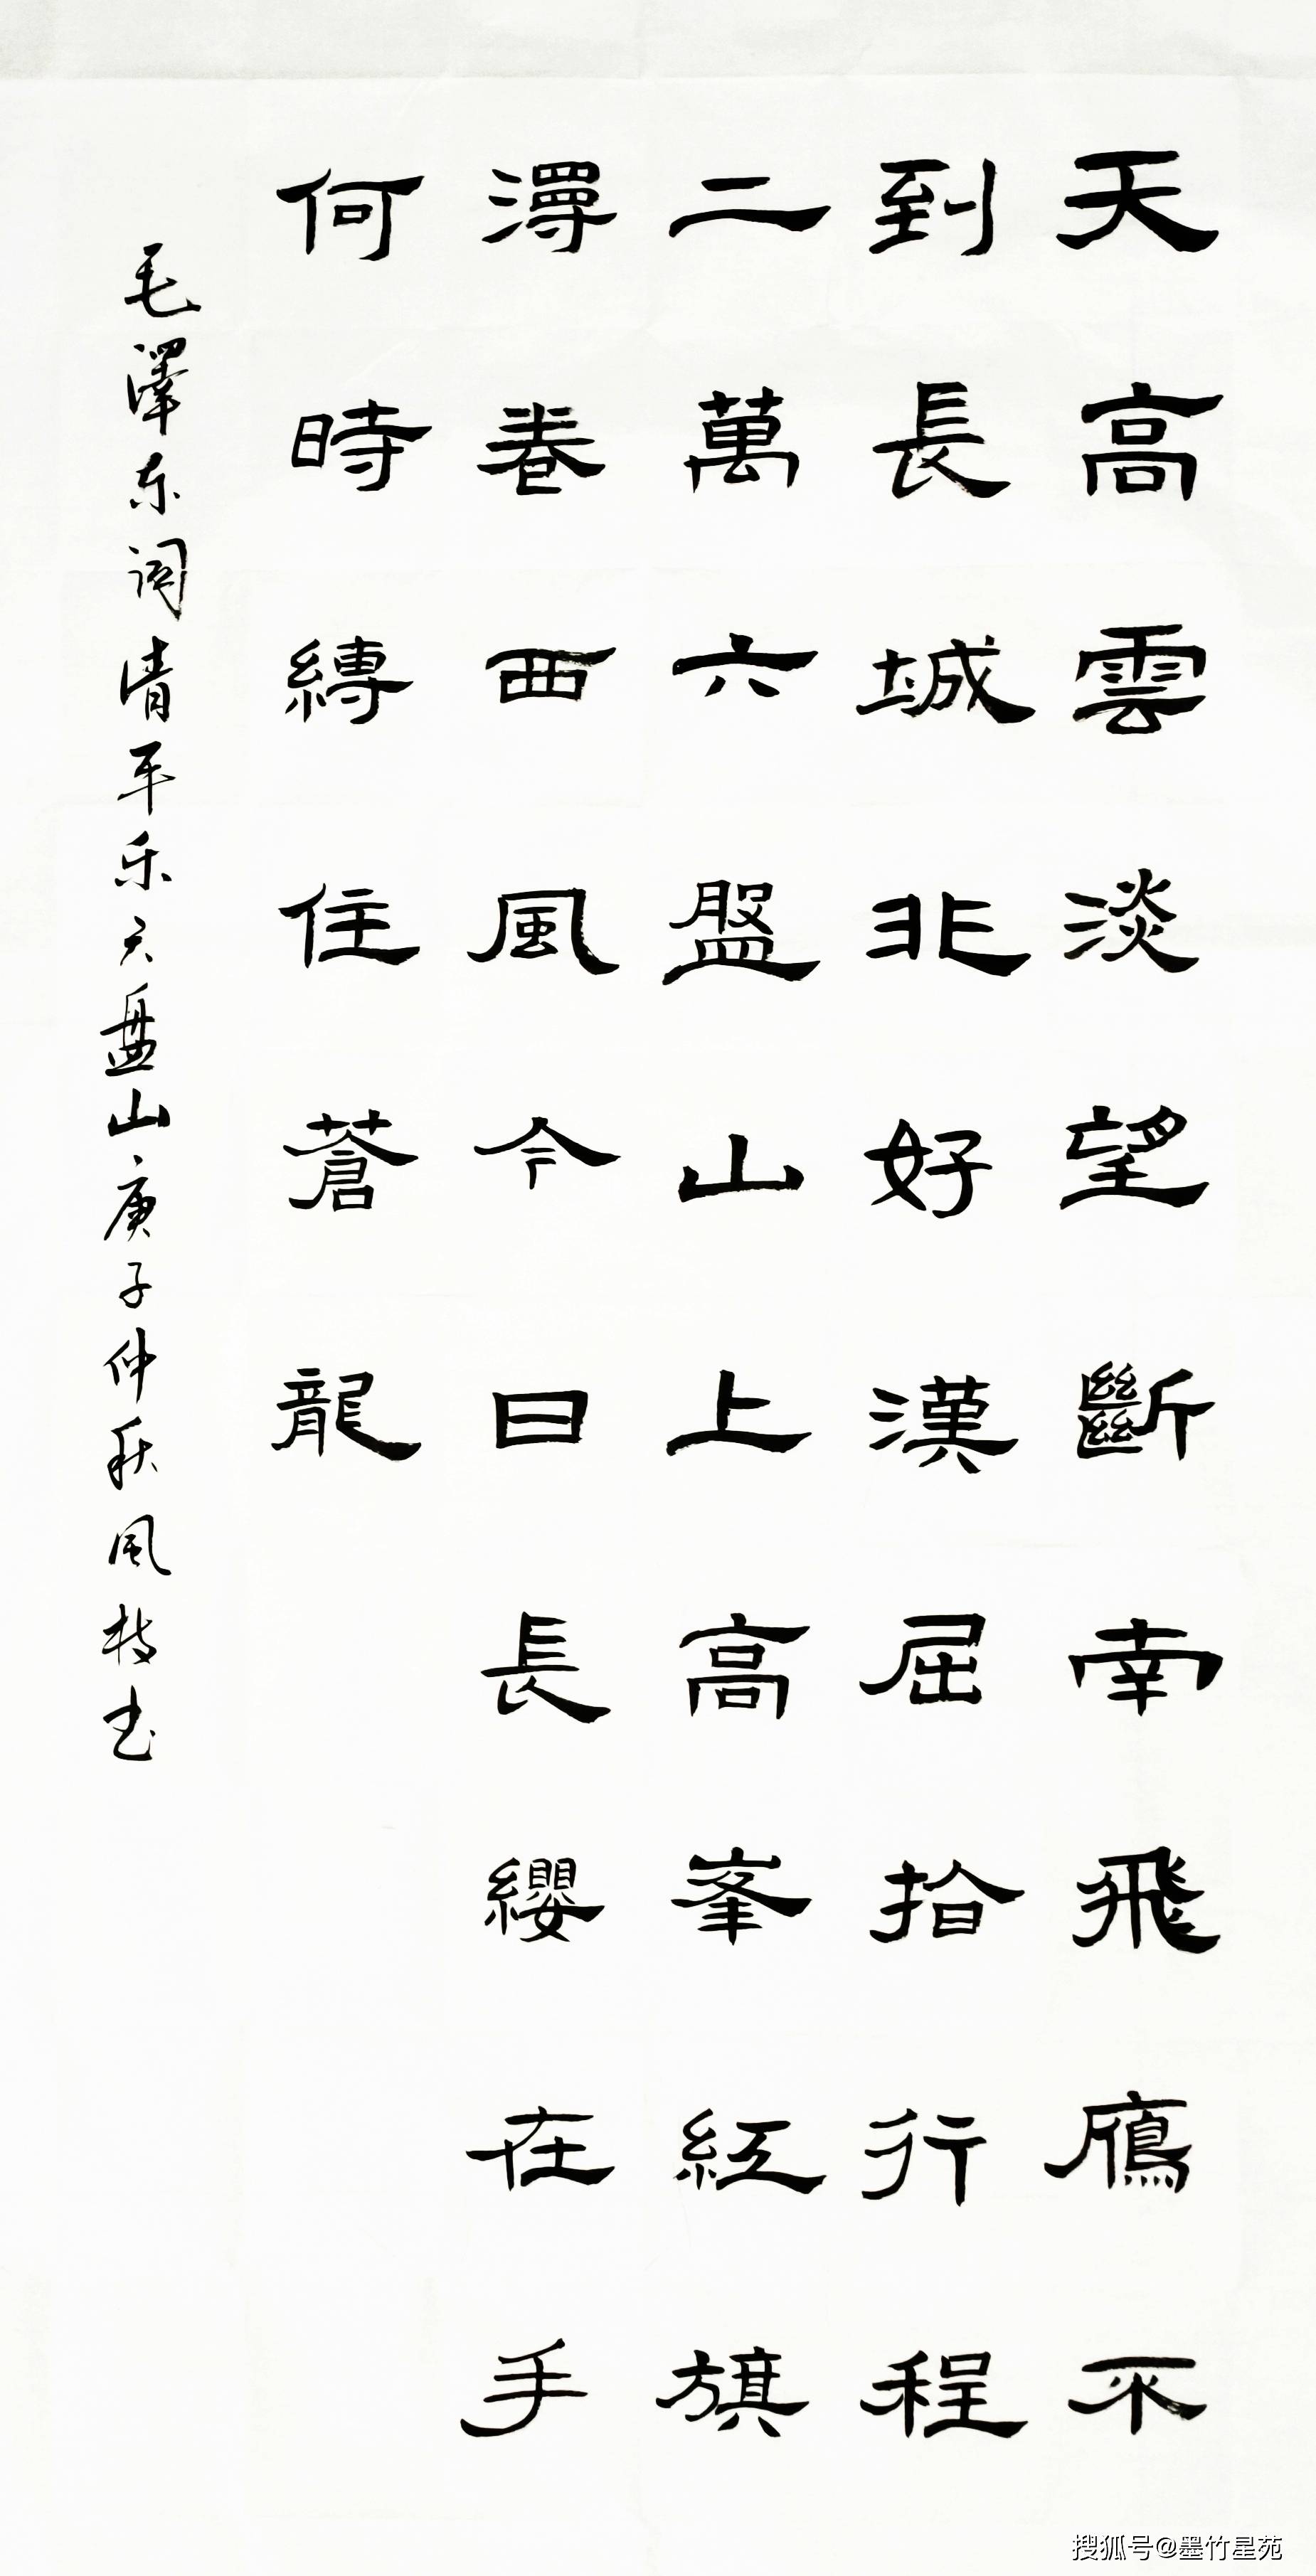 天高雲淡望斷南飛鴈不
到長城非好漢屈指行程
二萬六盤山上高峯紅旗
漫卷西風今日長纓在手
何時縛住蒼龍
毛澤东词清平乐六盘山庚子仲秋风枝书
搜狐号@墨竹星苑